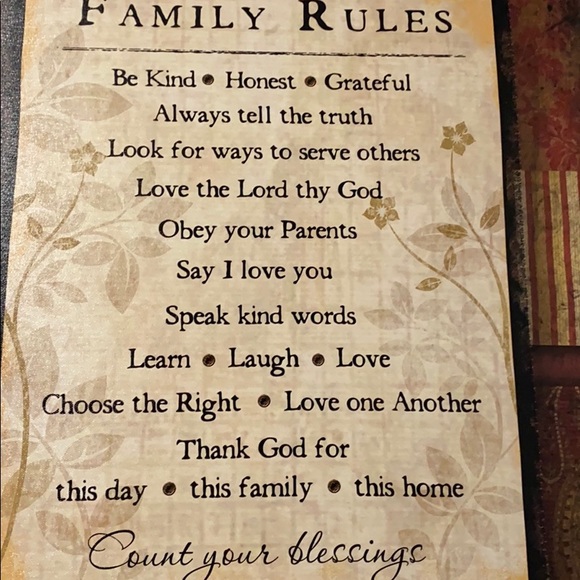 FAMILY RULES
Be Kind • Honest • Grateful
Always tell the truth
Look for ways to serve others
Love the Lord thy God
Obey your Parents
Say I love you
Speak kind words
Learn • Laugh • Love
Choose the Right • Love one Another
Thank God for
this day • this family • this home
Count your blessings